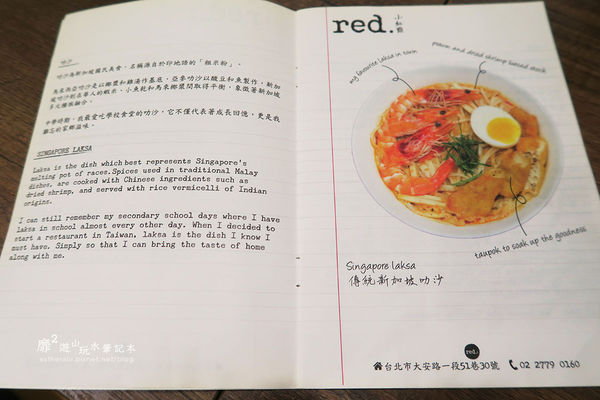 叻沙
叻沙為新加坡國民美食，名稱源自於印地語的「粗米粉」。
馬來西亞叻沙是以椰漿和雞湯作基底，亞參叻沙以酸豆和魚製作，新加
坡叻沙則在華人的蝦米、小魚乾和馬來椰漿間取得平衡，象徵著新加坡
多元種族融合。
中學時期，我最愛吃學校食堂的叻沙，它不僅代表著成長回憶，更是我
難忘的家鄉滋味。
SINGAPORE LAKSA
Laksa is the dish which best represents Singapore's
melting pot of races.Spices used in traditional Malay
dishes, are cooked with Chinese ingredients such as
dried shrimp, and served with rice vermicelli of Indian
origins.
I can still remember my secondary school days where I have
laksa in school almost every other day. When I decided to
start a restaurant in Taiwan, laksa is the dish I know I
must have. Simply so that I can bring the taste of home
along with me.
廖2遊山玩水筆記本
red.
小紅點
my favourite laksa in town
Prawn and dried shrimp based stock
taupok to soak up the goodness
Singapore laksa
傳統新加坡叻沙
red.
台北市大安路一段51巷30號 02 2779 0160